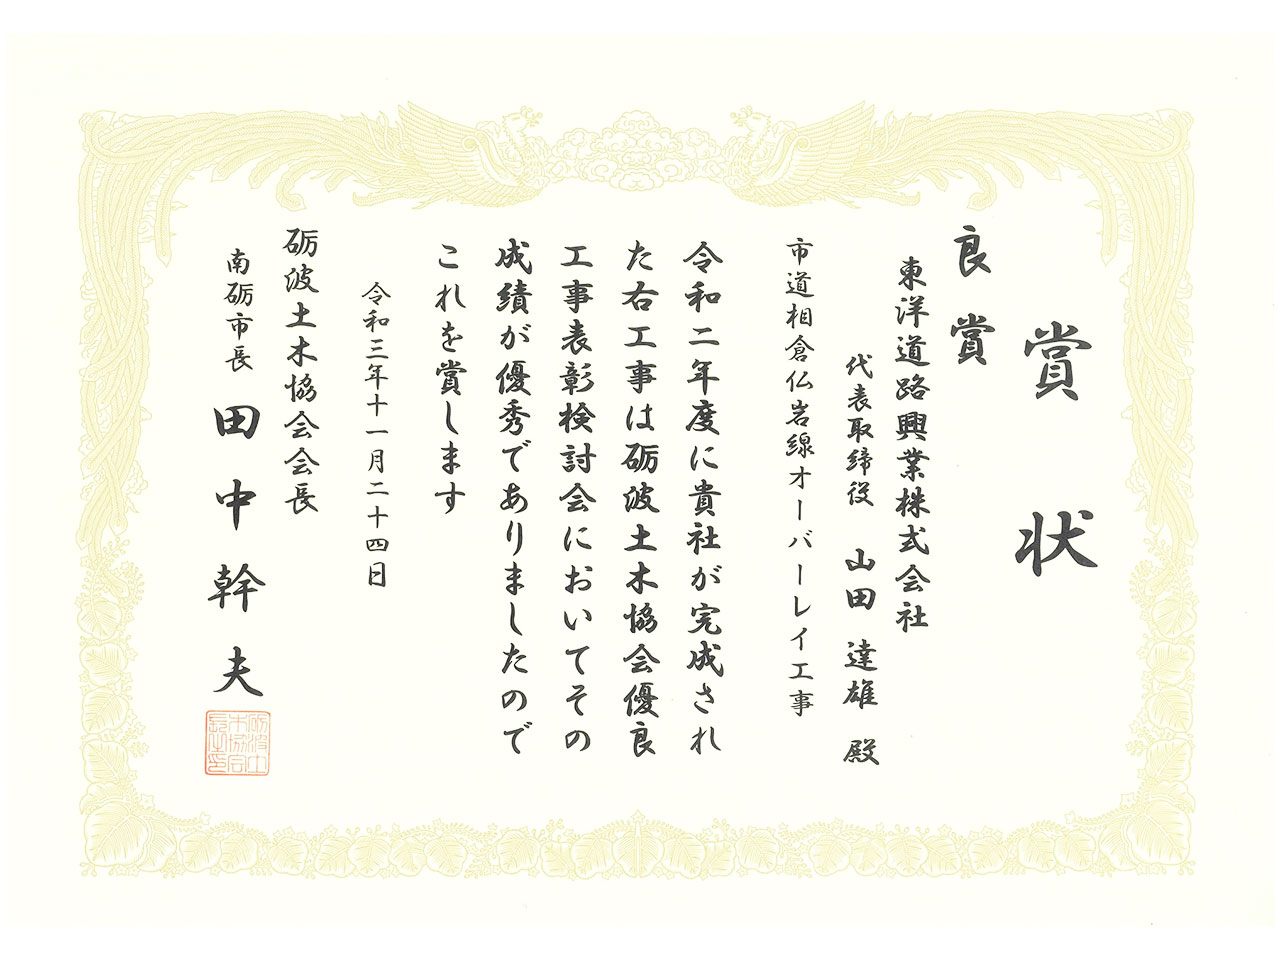 賞状
良賞
東洋道路興業株式会社
代表取締役 山田 達雄 殿
市道相倉仏岩線オーバーレイ工事
令和二年度に貴社が完成され
た右工事は砺波土木協会優良
工事表彰検討会においてその
成績が優秀でありましたので
これを賞します
令和三年十一月二十四日
砺波土木協会会長
南砺市長 田中幹夫
砺波土木協会長之印